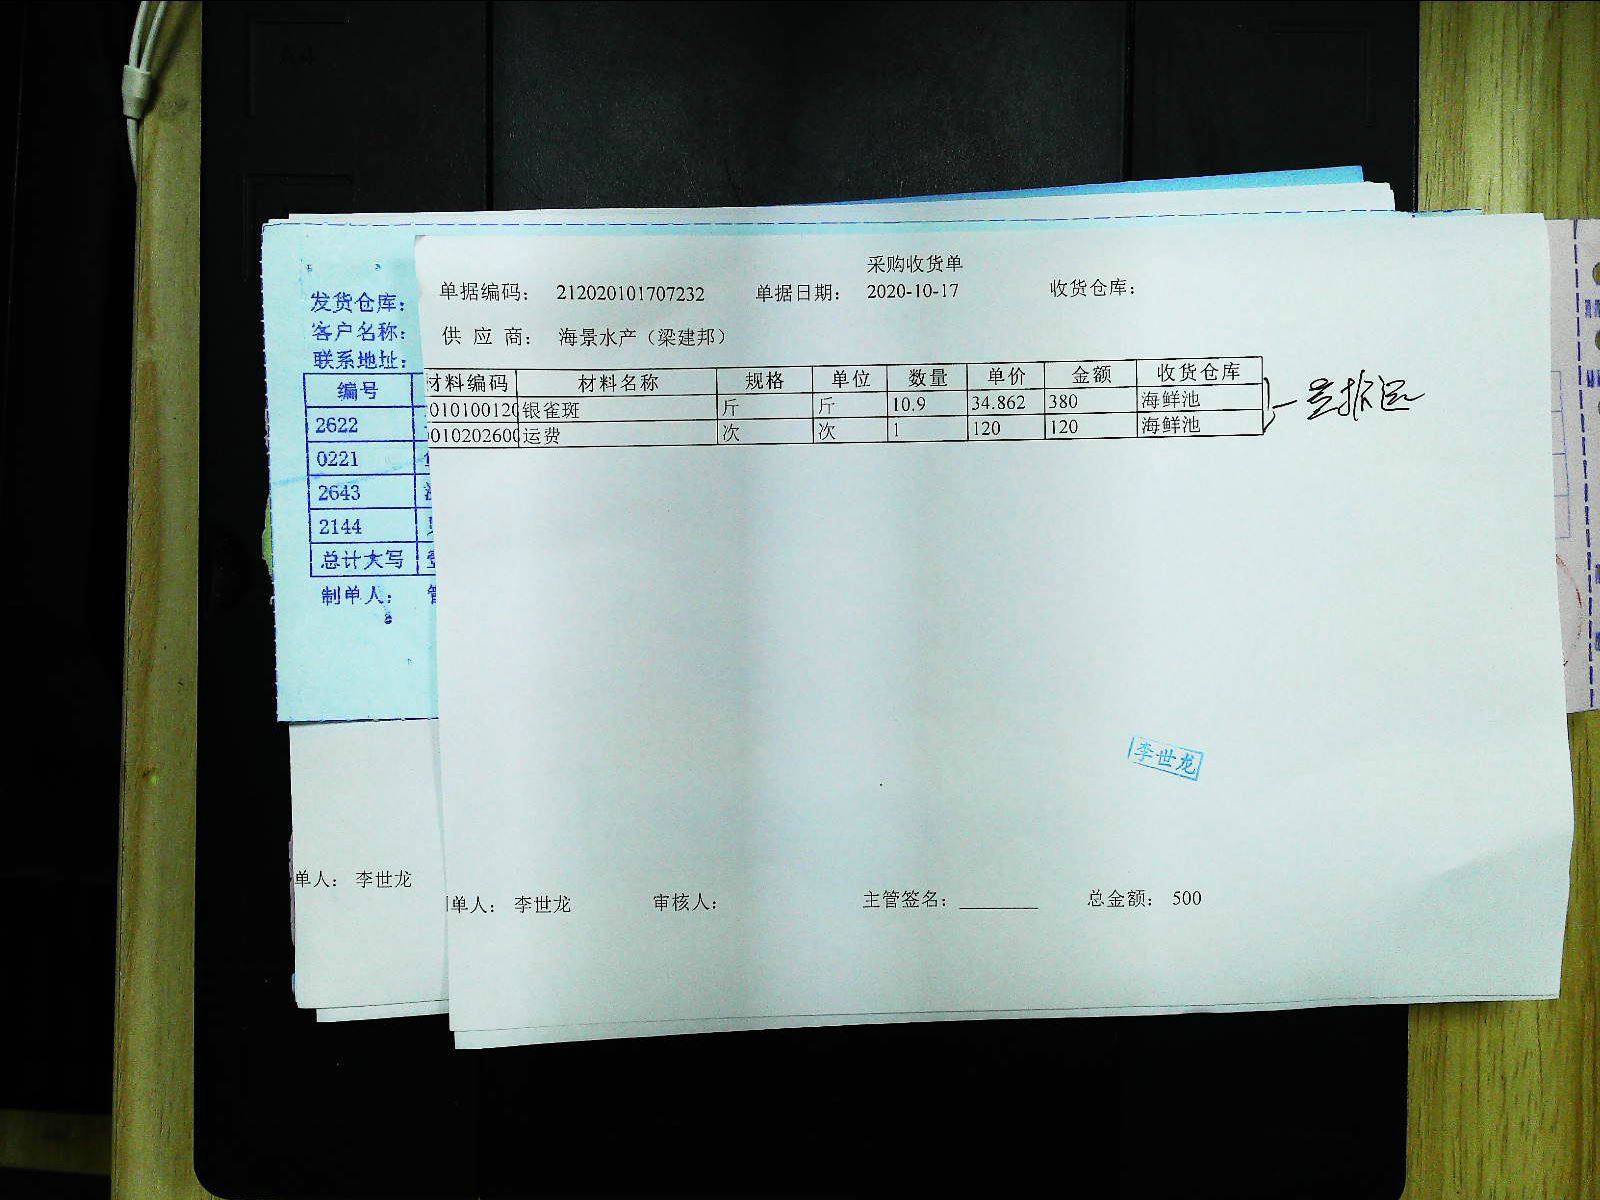 采购收货单
单据编码： 212020101707232 单据日期： 2020-10-17 收货仓库：
供 应 商： 海景水产（梁建邦）
材料编码 材料名称 规格 单位 数量 单价 金额 收货仓库
010100120 银雀斑 斤 斤 10.9 34.862 380 海鲜池
010202600 运费 次 次 1 120 120 海鲜池
李世龙
单人： 李世龙 审核人： 主管签名：________ 总金额： 500
发货仓库：
客户名称：
联系地址：
编号
2622
0221
2643
2144
总计大写
制单人：
单人： 李世龙